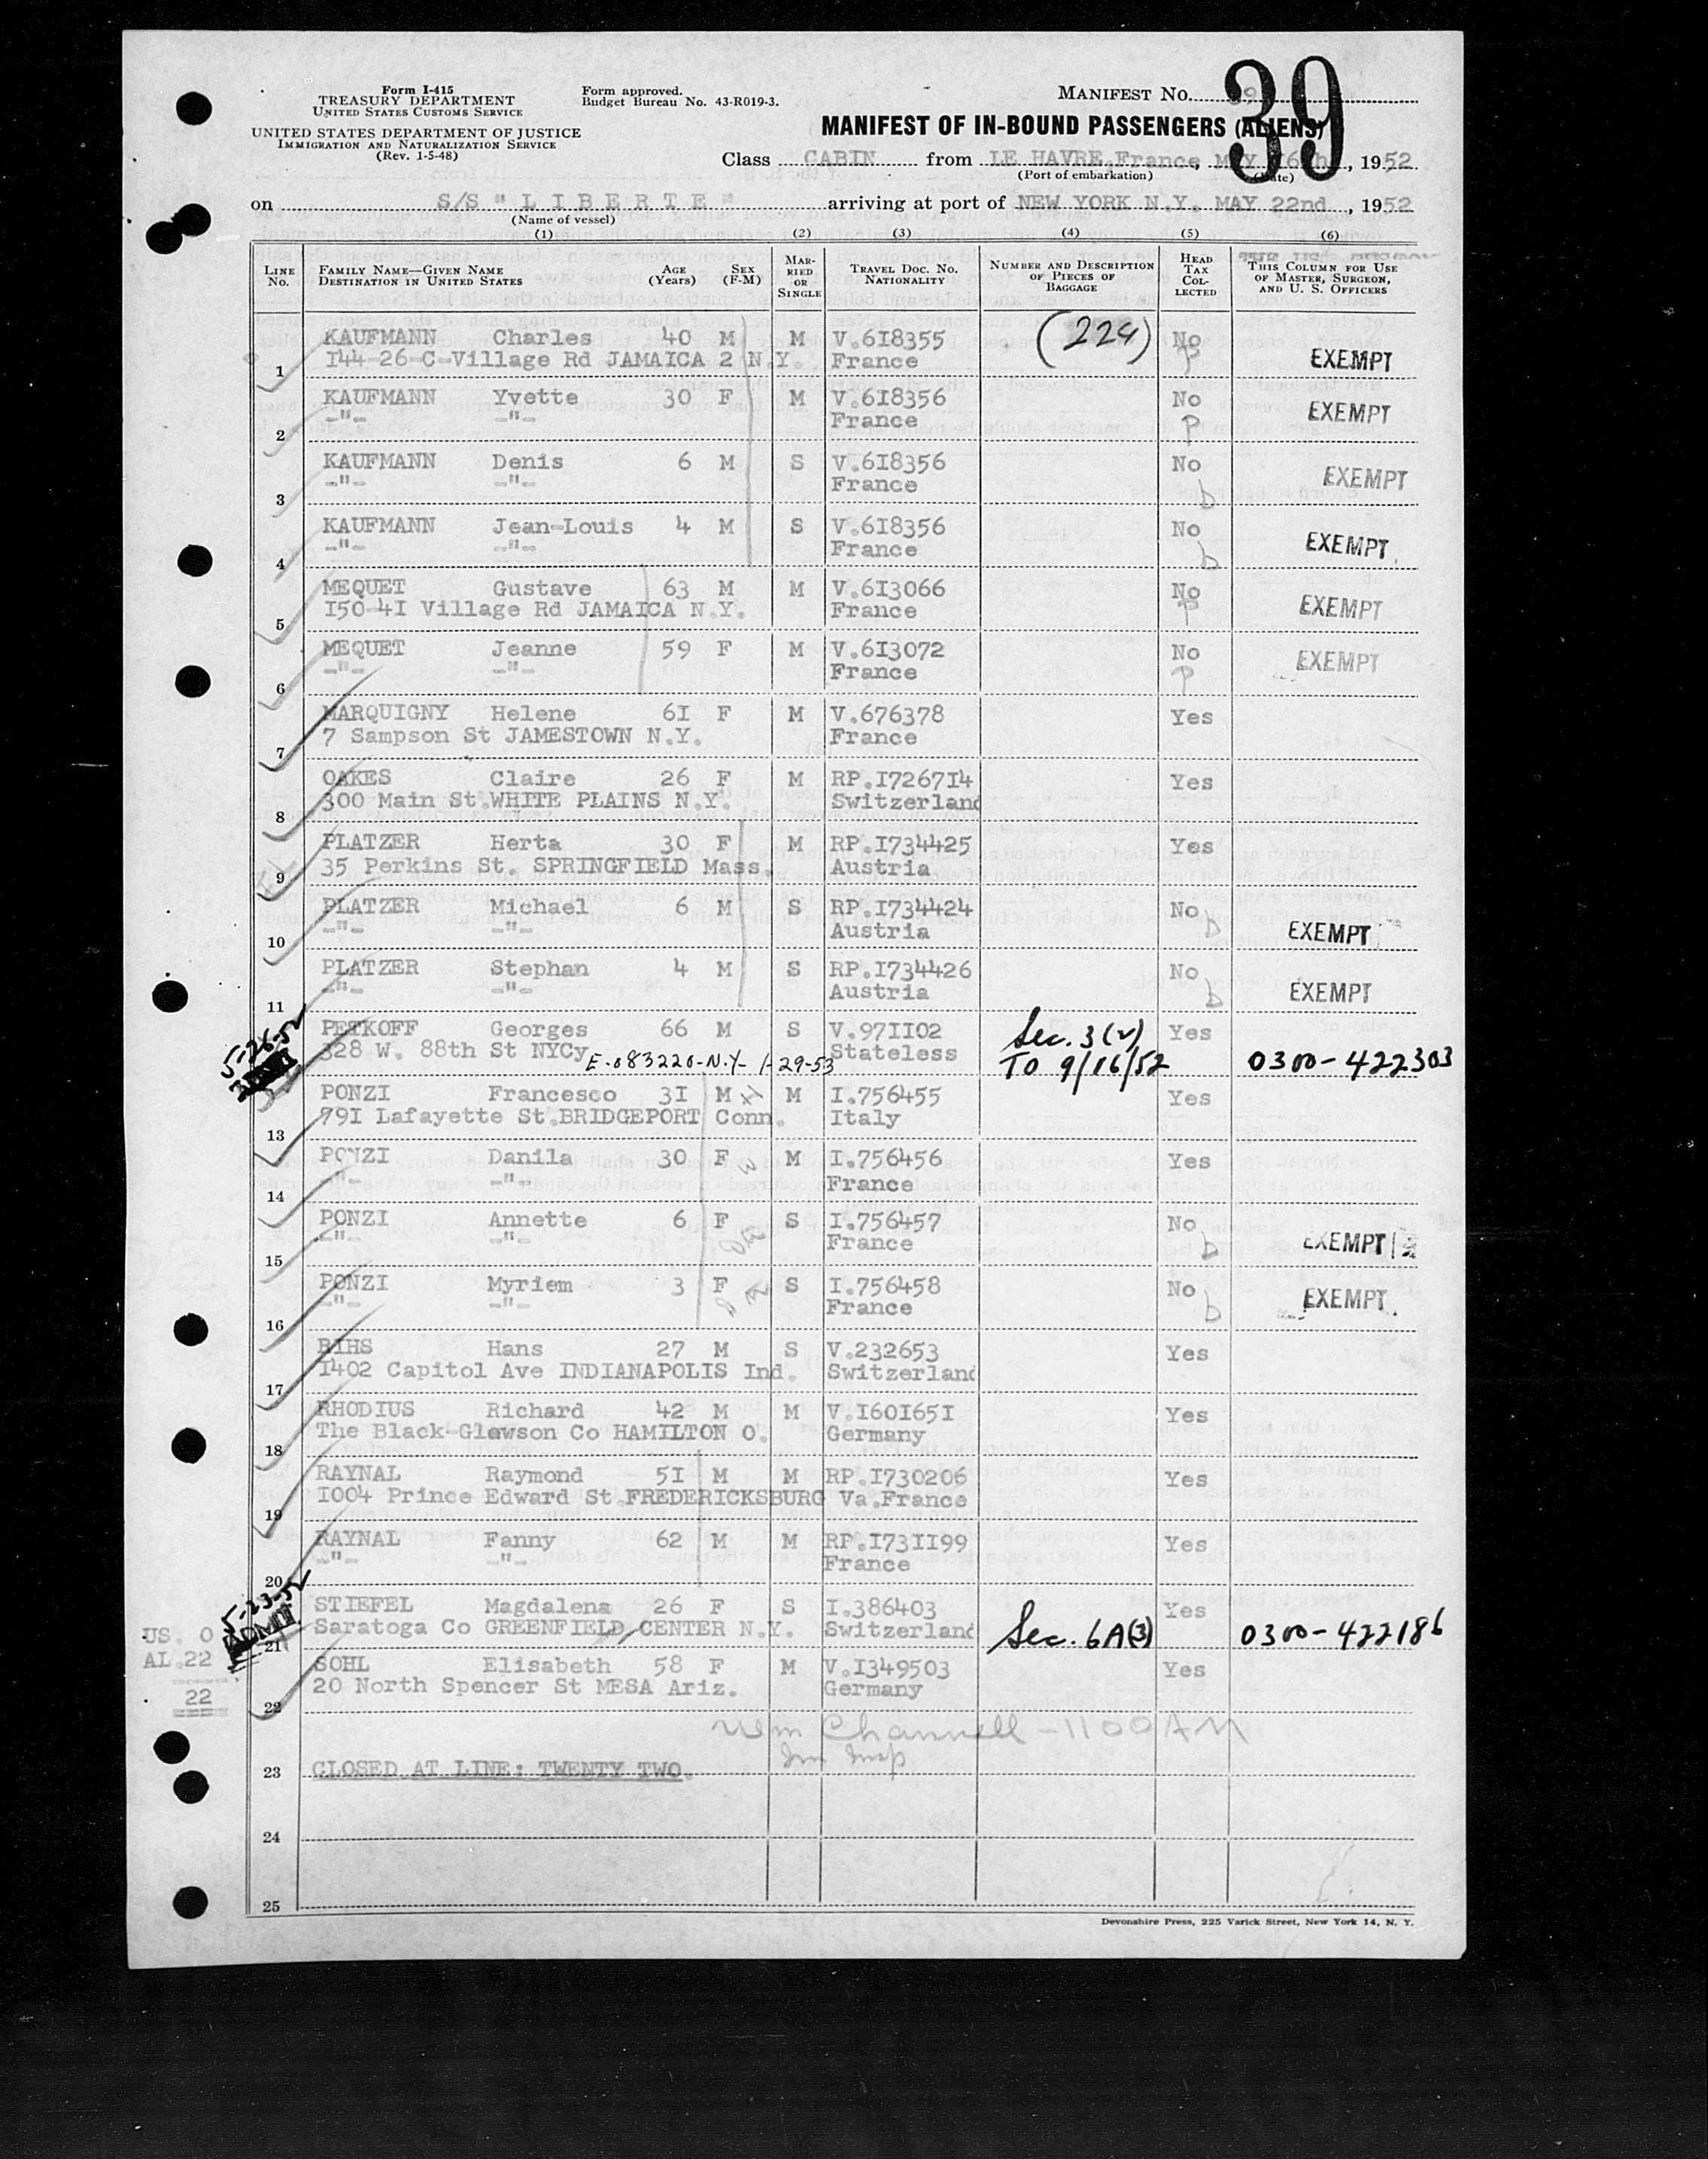 Form I-415
TREASURY DEPARTMENT
UNITED STATES CUSTOMS SERVICE
UNITED STATES DEPARTMENT OF JUSTICE
IMMIGRATION AND NATURALIZATION SERVICE
(Rev. 1-5-48)
Form approved.
Budget Bureau No. 43-R019-3.
MANIFEST No.
39
MANIFEST OF IN-BOUND PASSENGERS (ALIENS)
Class CABIN from LE HAVRE, France, MAY 16th, 1952
(Port of embarkation) (Date)
on S/S "LIBERTE" arriving at port of NEW YORK N.Y. MAY 22nd, 1952
(Name of vessel)
(1) (2) (3) (4) (5) (6)
LINE No. FAMILY NAME—GIVEN NAME DESTINATION IN UNITED STATES AGE (Years) SEX (F-M) MARRIED OR SINGLE TRAVEL DOC. No. NATIONALITY NUMBER AND DESCRIPTION OF PIECES OF BAGGAGE HEAD TAX COLLECTED THIS COLUMN FOR USE OF MASTER, SURGEON, AND U. S. OFFICERS
KAUFMANN Charles 40 M M V.6I8355 (224) No
1 I44-26 C-Village Rd JAMAICA 2 N.Y. France P EXEMPT
KAUFMANN Yvette 30 F M V.6I8356 No
2 -"- -"- France P EXEMPT
KAUFMANN Denis 6 M S V.6I8356 No
3 -"- -"- France b EXEMPT
KAUFMANN Jean-Louis 4 M S V.6I8356 No
4 -"- -"- France b EXEMPT
MEQUET Gustave 63 M M V.6I3066 No
5 I50-4I Village Rd JAMAICA N.Y. France P EXEMPT
MEQUET Jeanne 59 F M V.6I3072 No
6 -"- -"- France P EXEMPT
MARQUIGNY Helene 6I F M V.676378 Yes
7 7 Sampson St JAMESTOWN N.Y. France
OAKES Claire 26 F M RP.I7267I4 Yes
8 300 Main St.WHITE PLAINS N.Y. Switzerland
PLATZER Herta 30 F M RP.I734425 Yes
9 35 Perkins St. SPRINGFIELD Mass. Austria
PLATZER Michael 6 M S RP.I734424 No
10 -"- -"- Austria b EXEMPT
PLATZER Stephan 4 M S RP.I734426 No
11 -"- -"- Austria b EXEMPT
5-26-52 PETKOFF Georges 66 M S V.97II02 Sec. 3(2) Yes
328 W. 88th St NYCy E-083220-N.Y- 1-29-53 Stateless TO 9/16/52 0300-422303
PONZI Francesco 3I M M I.756455 Yes
13 79I Lafayette St.BRIDGEPORT Conn. Italy
PONZI Danila 30 F M I.756456 Yes
14 -"- -"- France
PONZI Annette 6 F S I.756457 No
15 -"- -"- France b EXEMPT
PONZI Myriem 3 F S I.756458 No
16 -"- -"- France b EXEMPT
BIHS Hans 27 M S V.232653 Yes
17 I402 Capitol Ave INDIANAPOLIS Ind. Switzerland
RHODIUS Richard 42 M M V.I60I65I Yes
18 The Black-Glawson Co HAMILTON O. Germany
RAYNAL Raymond 5I M M RP.I730206 Yes
19 I004 Prince Edward St.FREDERICKSBURG Va.France
RAYNAL Fanny 62 M M RP.I73II99 Yes
20 -"- -"- France
5-23-52 STIEFEL Magdalena 26 F S I.386403 Yes
ADMIT 21 Saratoga Co GREENFIELD CENTER N.Y. Switzerland Sec. 6A(3) 0300-422186
US. 0
AL.22
22
SOHL Elisabeth 58 F M V.I349503 Yes
22 20 North Spencer St MESA Ariz. Germany
Wm Channell - 1100 AM
Im Insp
23 CLOSED AT LINE: TWENTY TWO.
24
25
Devonshire Press, 225 Varick Street, New York 14, N. Y.